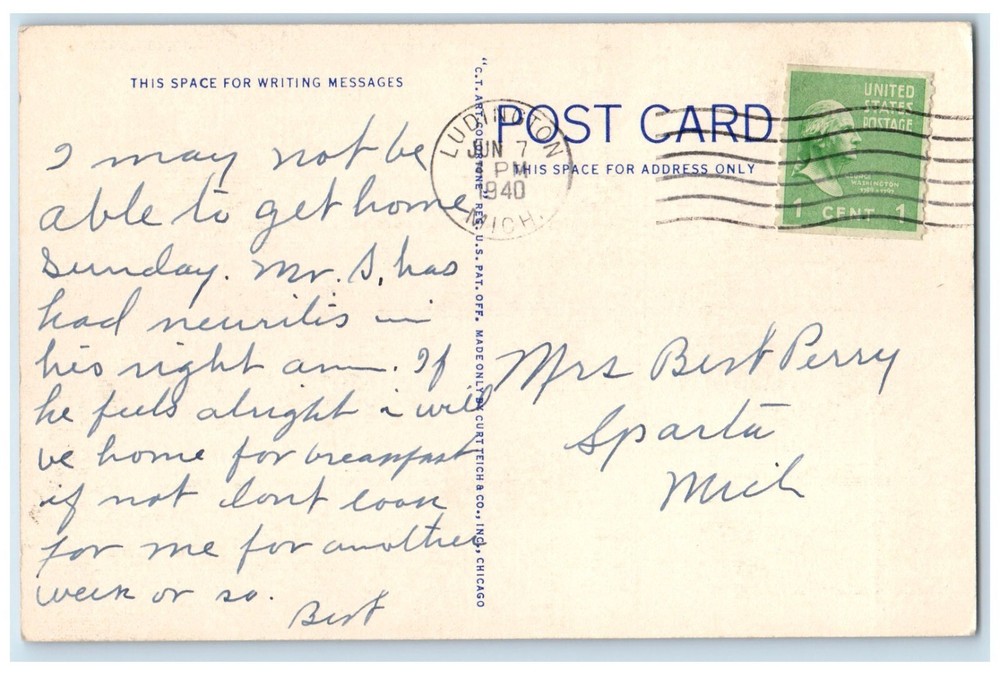 THIS SPACE FOR WRITING MESSAGES
I may not be
able to get home
Sunday. Mr. S. has
had neuritis in
his right arm. If
he feels alright i will
be home for breakfast
if not dont look
for me for another
week or so.
Bert
"C.T. ART-COLORTONE" REG. U.S. PAT. OFF. MADE ONLY BY CURT TEICH & CO., INC., CHICAGO
POST CARD
THIS SPACE FOR ADDRESS ONLY
LUDINGTON
JUN 7
PM
1940
MICH.
UNITED
STATES
POSTAGE
GEORGE
WASHINGTON
1789-1797
1 CENT 1
Mrs Bert Perry
Sparta
Mich